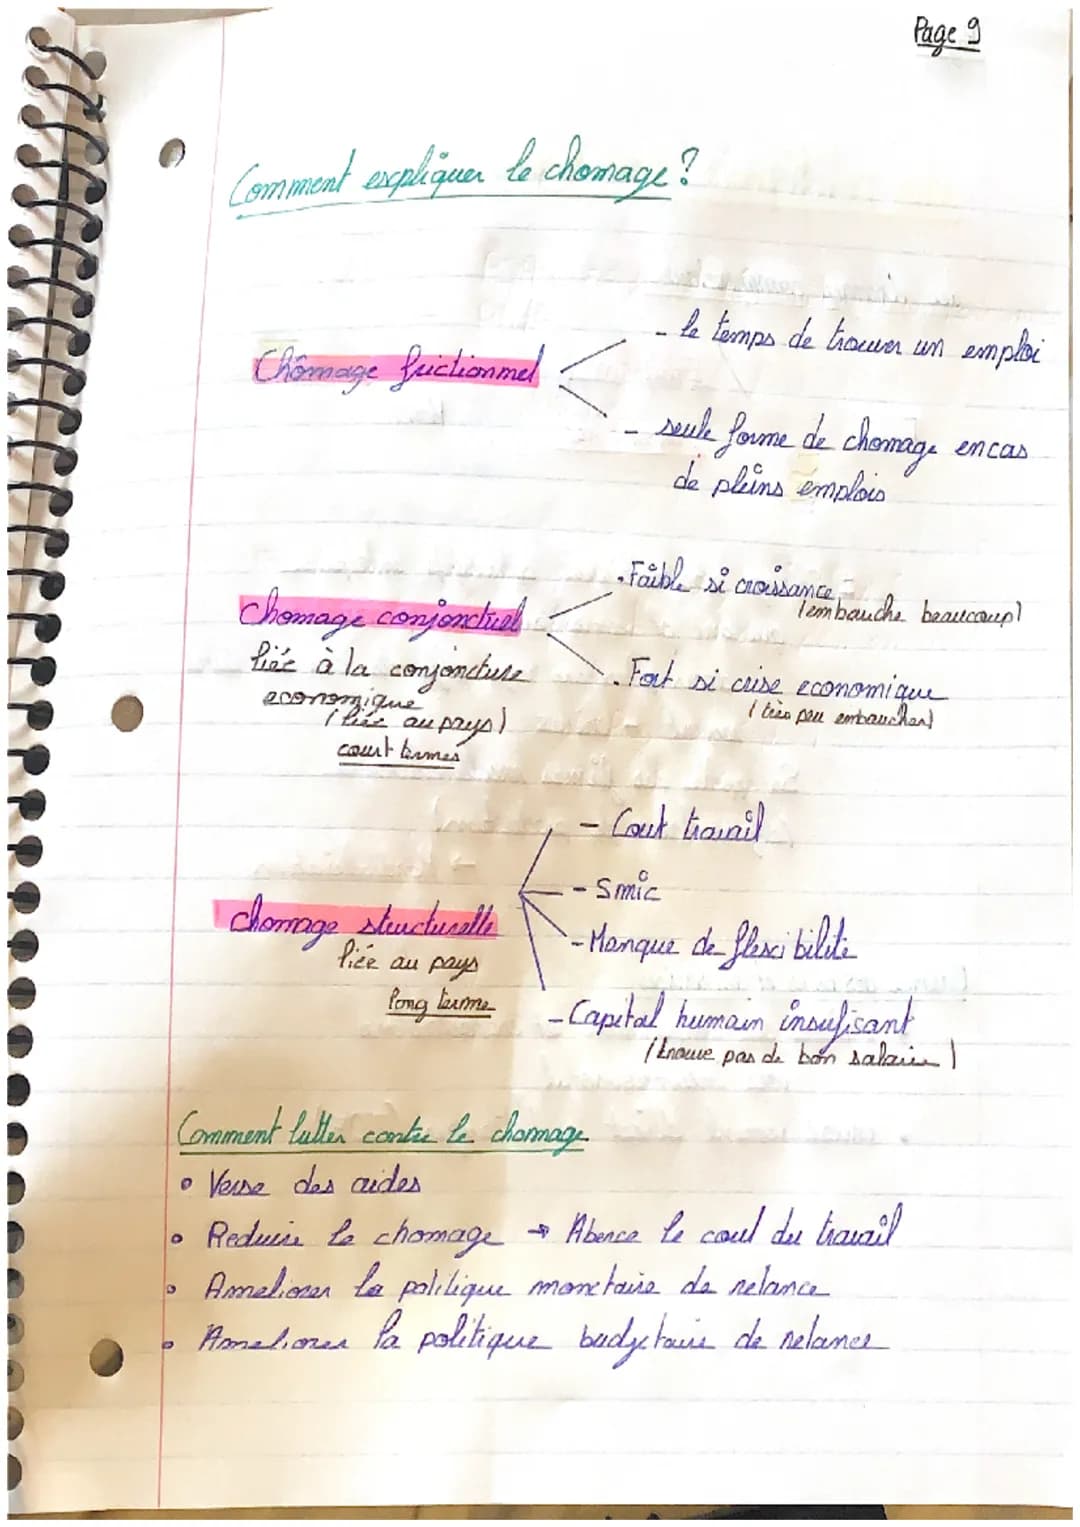 Page 9
Comment expliquer le chomage ?
Chômage frictionnel
- le temps de trouver un emploi
- seule forme de chomage en cas
de pleins emplois
chomage conjonctuel
liée à la conjoncture
economique
(liée au pays)
court termes
. Faible si croissance
(embauche beaucoup)
. Fort si crise economique
(très peu embaucher)
chomage structurelle
liée au pays
long terme
- Cout travail
- Smic
- Manque de flexibilité
- Capital humain insufisant
(trouve pas de bon salaire)
Comment lutter contre le chomage
• Verse des aides
• Reduire le chomage → le cout du travail
• Ameliorer la politique monetaire de relance
• Ameliorer la politique budgetaire de relance